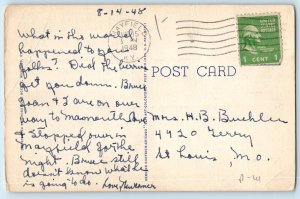 8-14-48
What in the world
happened to you
folks? Did the berries
get you down. Bruce
Joan & I are on our
way to Mammouth Cave
& stopped over in
Mayfield for the
night. Bruce still
doesn't know what he
is going to do. Love,
MAYFIELD
1948
KY.
POST CARD
1 CENT 1
Mrs. H. B. Buehler
4920 Terry
St Louis, Mo.